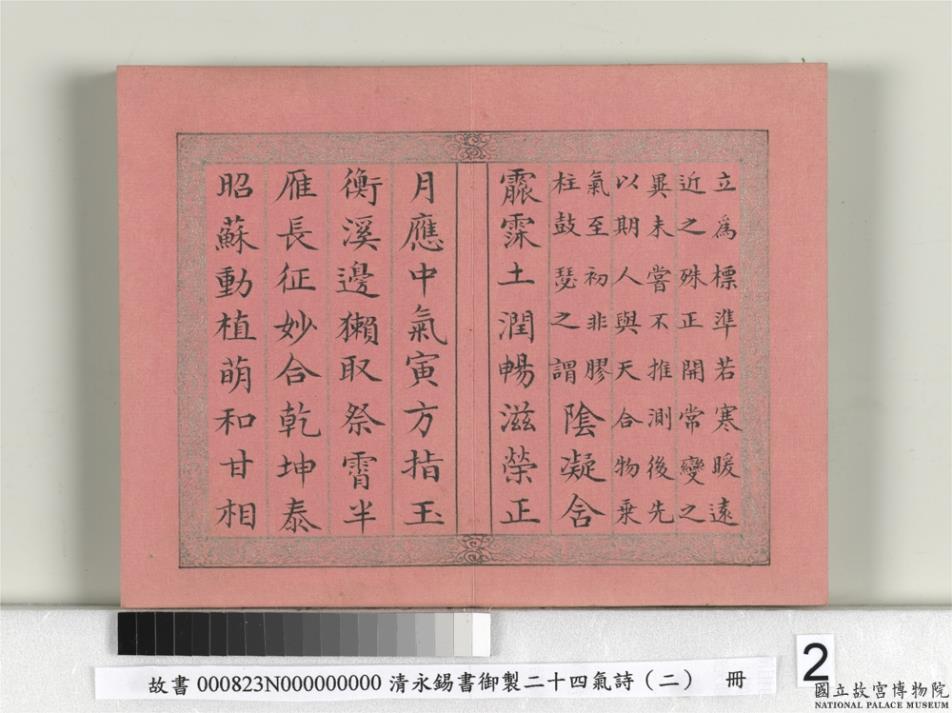 立為標準若寒暖遠
近之殊正開常變之
異未嘗不推測後先
以期人與天合物乗
氣至初非膠
柱鼓瑟之謂
陰凝舍
霢霂土潤暢滋榮正
月應中氣寅方指玉
衡溪邊獺取祭霄半
雁長征妙合乾坤泰
昭蘇動植萌和甘相
故書 000823N000000000 清永錫書御製二十四氣詩（二） 冊
2
國立故宮博物院
NATIONAL PALACE MUSEUM